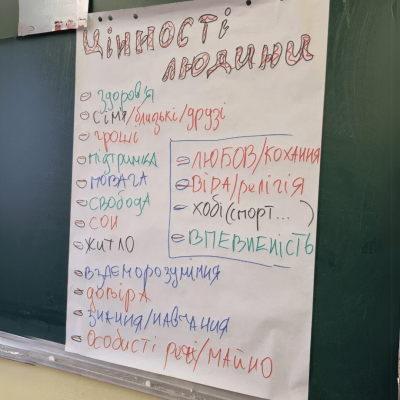 ЦІННОСТІ
ЛЮДИНИ
здоров'я
сім'я/близькі/друзі
гроші
підтримка
ПОВАГА
СВОБОДА
СОН
ЖИТЛО
взаєморозуміння
довіра
знання/навчання
особисті речі/майно
ЛЮБОВ/КОХАННЯ
ВІРА/релігія
хобі (спорт...)
ВПЕВНЕНІСТЬ